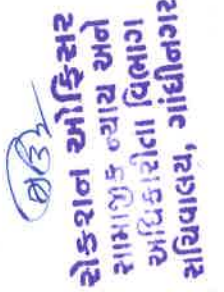 સેક્શન ઓફિસર
સામાજીક ન્યાય અને
અધિકારીતા વિભાગ
સચિવાલય, ગાંધીનગર